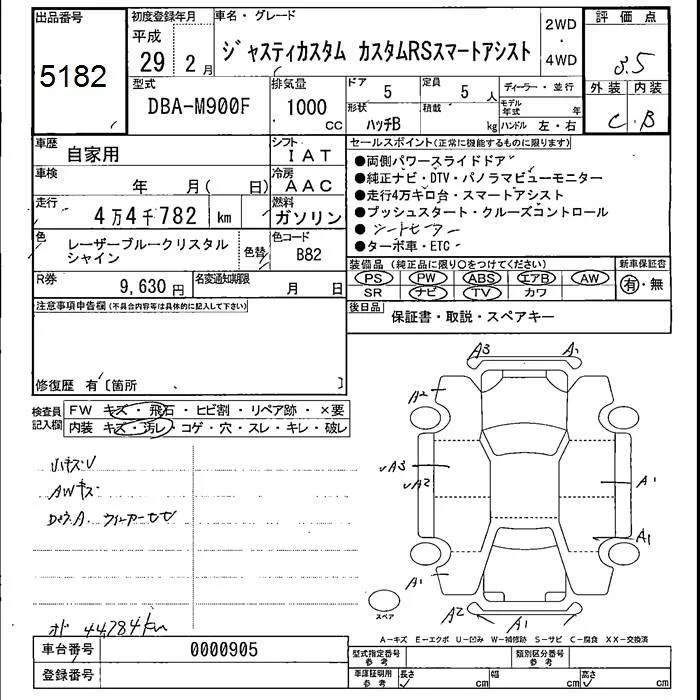 出品番号
5182
初度登録年月
平成
29 2月
車名・グレード
ジャスティカスタム カスタムRSスマートアシスト
2WD
・
4WD
評価点
3.5
外装 内装
C B
型式
DBA-M900F
排気量
1000
cc
ドア
5
定員
5 人
形状
ハッチB
積載
kg
ディーラー・並行
モデル年式 年
ハンドル 左・右
車歴
自家用
シフト
IAT
車検
年 月( 日)
冷房
AAC
走行
4万4千782 km
燃料
ガソリン
色
レーザーブルークリスタル
シャイン
色替
色コード
B82
R券
9,630円
名変通知期限
月 日
セールスポイント(正常に機能するものに限ります)
●両側パワースライドドア
●純正ナビ・DTV・パノラマビューモニター
●走行4万キロ台・スマートアシスト
●プッシュスタート・クルーズコントロール
●シートヒーター
●ターボ車・ETC
装備品(純正品に限り○をつけてください)
PS PW ABS エアB AW
SR ナビ TV カワ
新車保証書
有・無
後日品
保証書・取説・スペアキー
注意事項申告欄(不具合内容等は具体的に記入して下さい)
修復歴 有〔箇所 〕
検査員
記入欄
FW キズ・飛石・ヒビ割・リペア跡・×要
内装 キズ・汚レ・コゲ・穴・スレ・キレ・破レ
AWキズ
オド 44,784km
A3 A1
A2
A3
A2
A1
A1
A1
A2 A1
スペア
A-キズ E-エクボ U-凹み W-補修跡 S-サビ C-腐食 XX-交換済
車台番号
0000905
登録番号
型式指定番号
参考
類別区分番号
参考
車庫証明用
参考
長さ cm 幅 cm 高さ cm